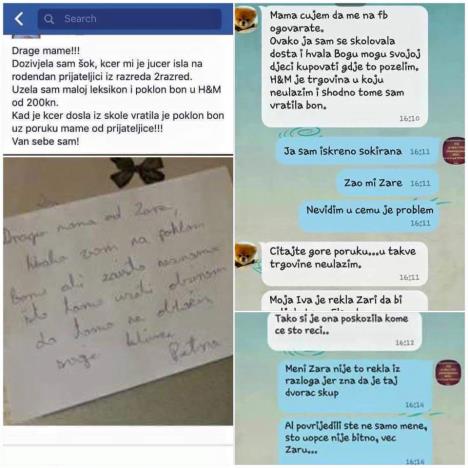 Search
Drage mame!!!
Dozivjela sam šok, kcer mi je jucer isla na
rodendan prijateljici iz razreda 2razred.
Uzela sam maloj leksikon i poklon bon u H&M
od 200kn.
Kad je kcer dosla iz skole vratila je poklon bon
uz poruku mame od prijateljice!!!
Van sebe sam!
Draga mama od Zare,
hvala vam na poklon
bonu ali zaista
što tamo uzeti obzirom
da tamo ne
Petra
Mama cujem da me na fb
ogovarate.
Ovako ja sam se skolovala
dosta i hvala Bogu mogu svojoj
djeci kupovati gdje to pozelim.
H&M je trgovina u koju
neulazim i shodno tome sam
vratila bon.
16:10
Ja sam iskreno sokirana 16:11
Zao mi Zare 16:11
Nevidim u cemu je problem
16:11
Citajte gore poruku...u takve
trgovine neulazim.
16:11
Moja Iva je rekla Zari da bi
Tako si je ona poskozila kome
ce sto reci..
16:12
Meni Zara nije to rekla iz
razloga jer zna da je taj
dvorac skup
16:14
Al povrijedili ste ne samo mene,
sto uopce nije bitno, vec
Zaru...
16:14